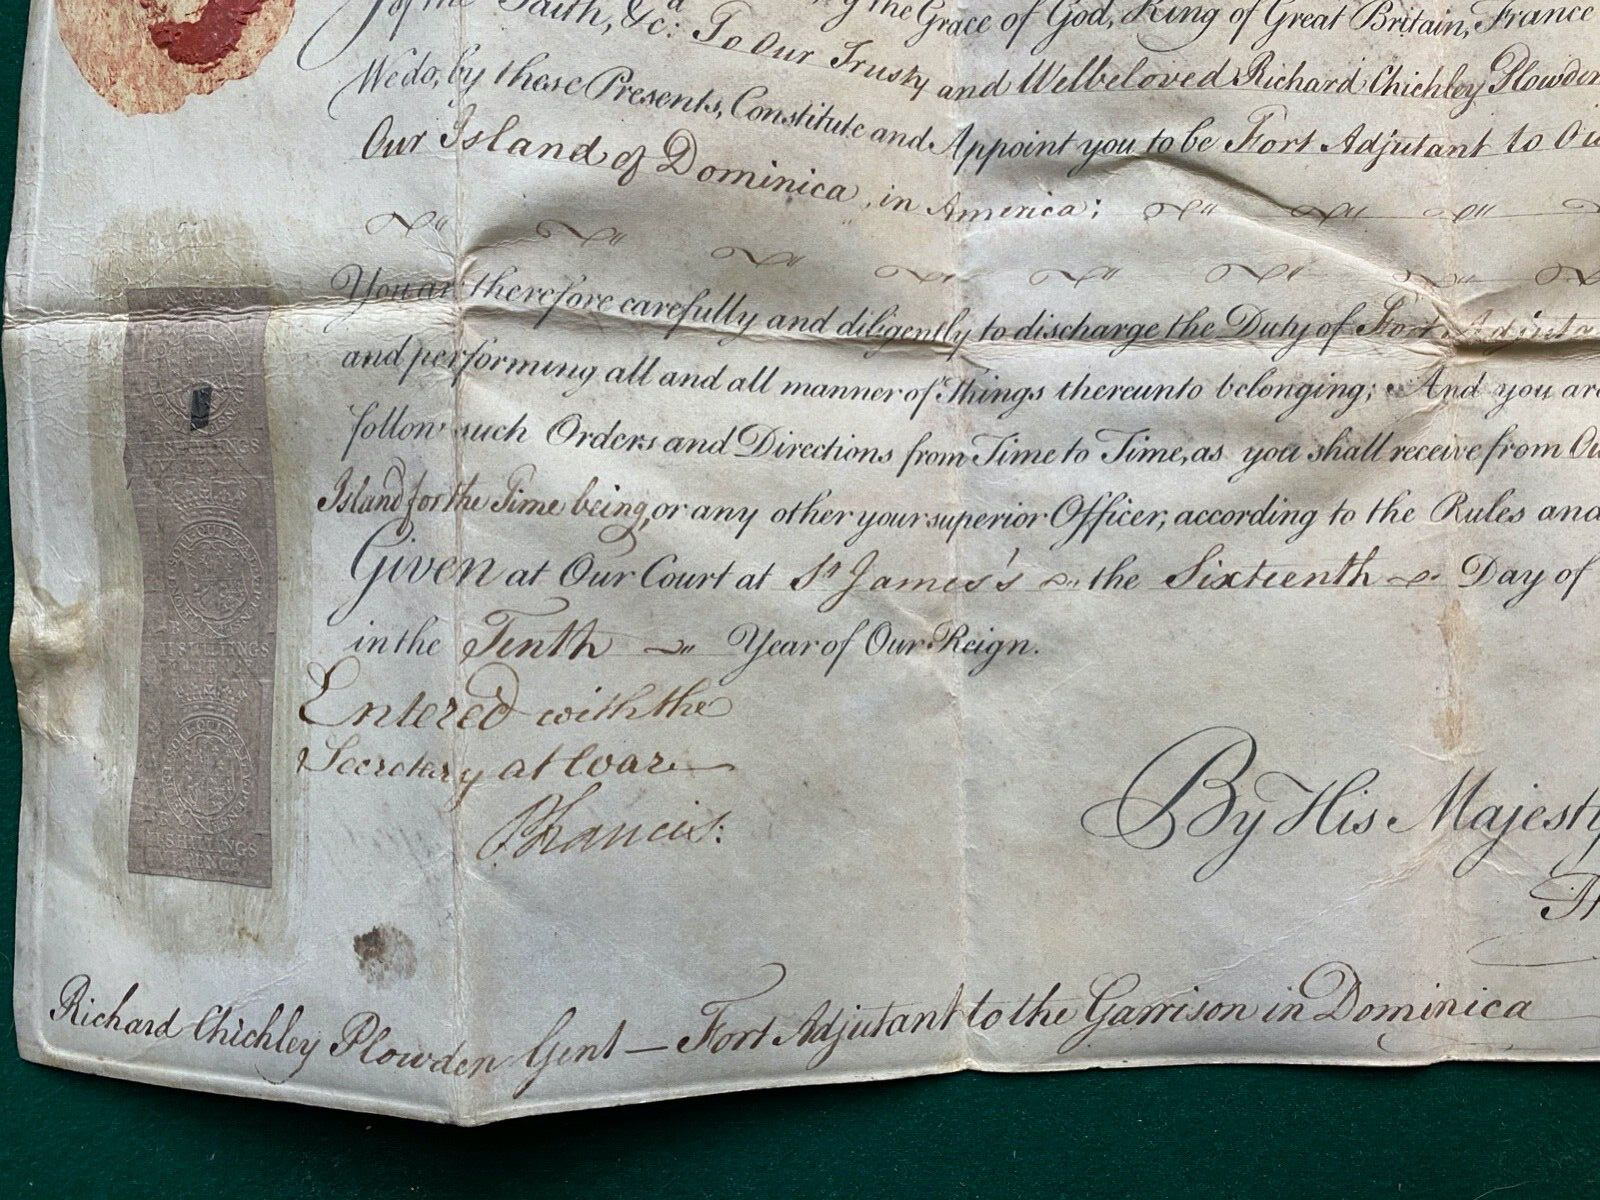 of the Faith, &c: To Our Trusty and Welbeloved Richard Chichley Plowden
the Grace of God, King of Great Britain, France
We do, by these Presents, Constitute and Appoint you to be Fort Adjutant to Ou
Our Island of Dominica, in America;
You are therefore carefully and diligently to discharge the Duty of Fort Adjuta
and performing all and all manner of Things thereunto belonging; And you are
follow such Orders and Directions from Time to Time, as you shall receive from Ou
Island for the Time being, or any other your superior Officer, according to the Rules and
Given at Our Court at St James's the Sixteenth Day of
in the Tenth Year of Our Reign.
Entered with the
Secretary at War
PFrancis:
By His Majesty
Richard Chichley Plowden Gent — Fort Adjutant to the Garrison in Dominica
SHILLINGS
II SHILLINGS
SHILLINGS
PENCE